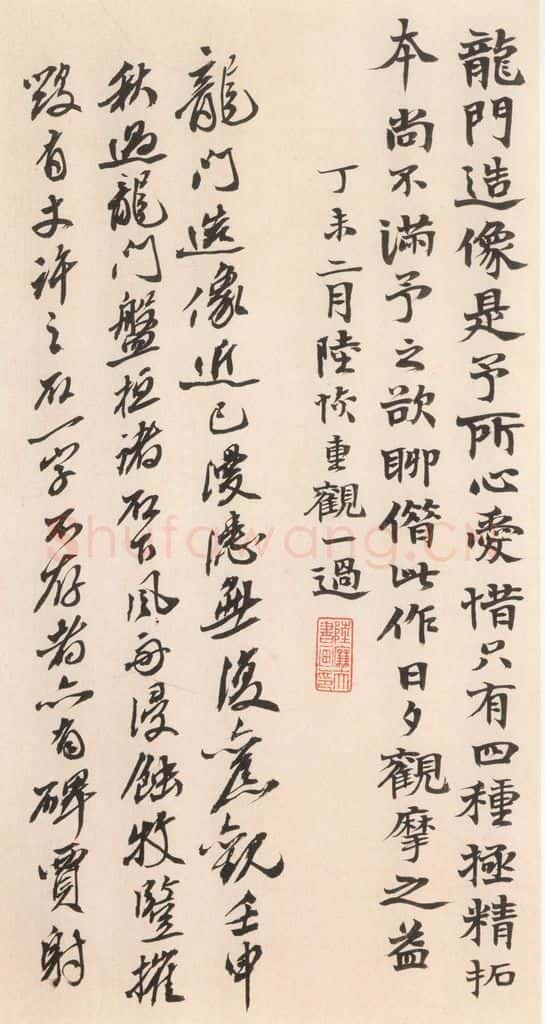 龍門造像是予所心愛惜只有四種極精拓
本尚不滿予之欲聊借此作日夕觀摩之益
丁未二月陸恢重觀一過
陸廉夫書画印
龍門造像近已漫漶無復舊觀壬申
秋過龍門盤桓諸石下風雨浸蝕牧豎摧
毀有丈許之石一字不存者亦有碑賈射
shufawang.cn